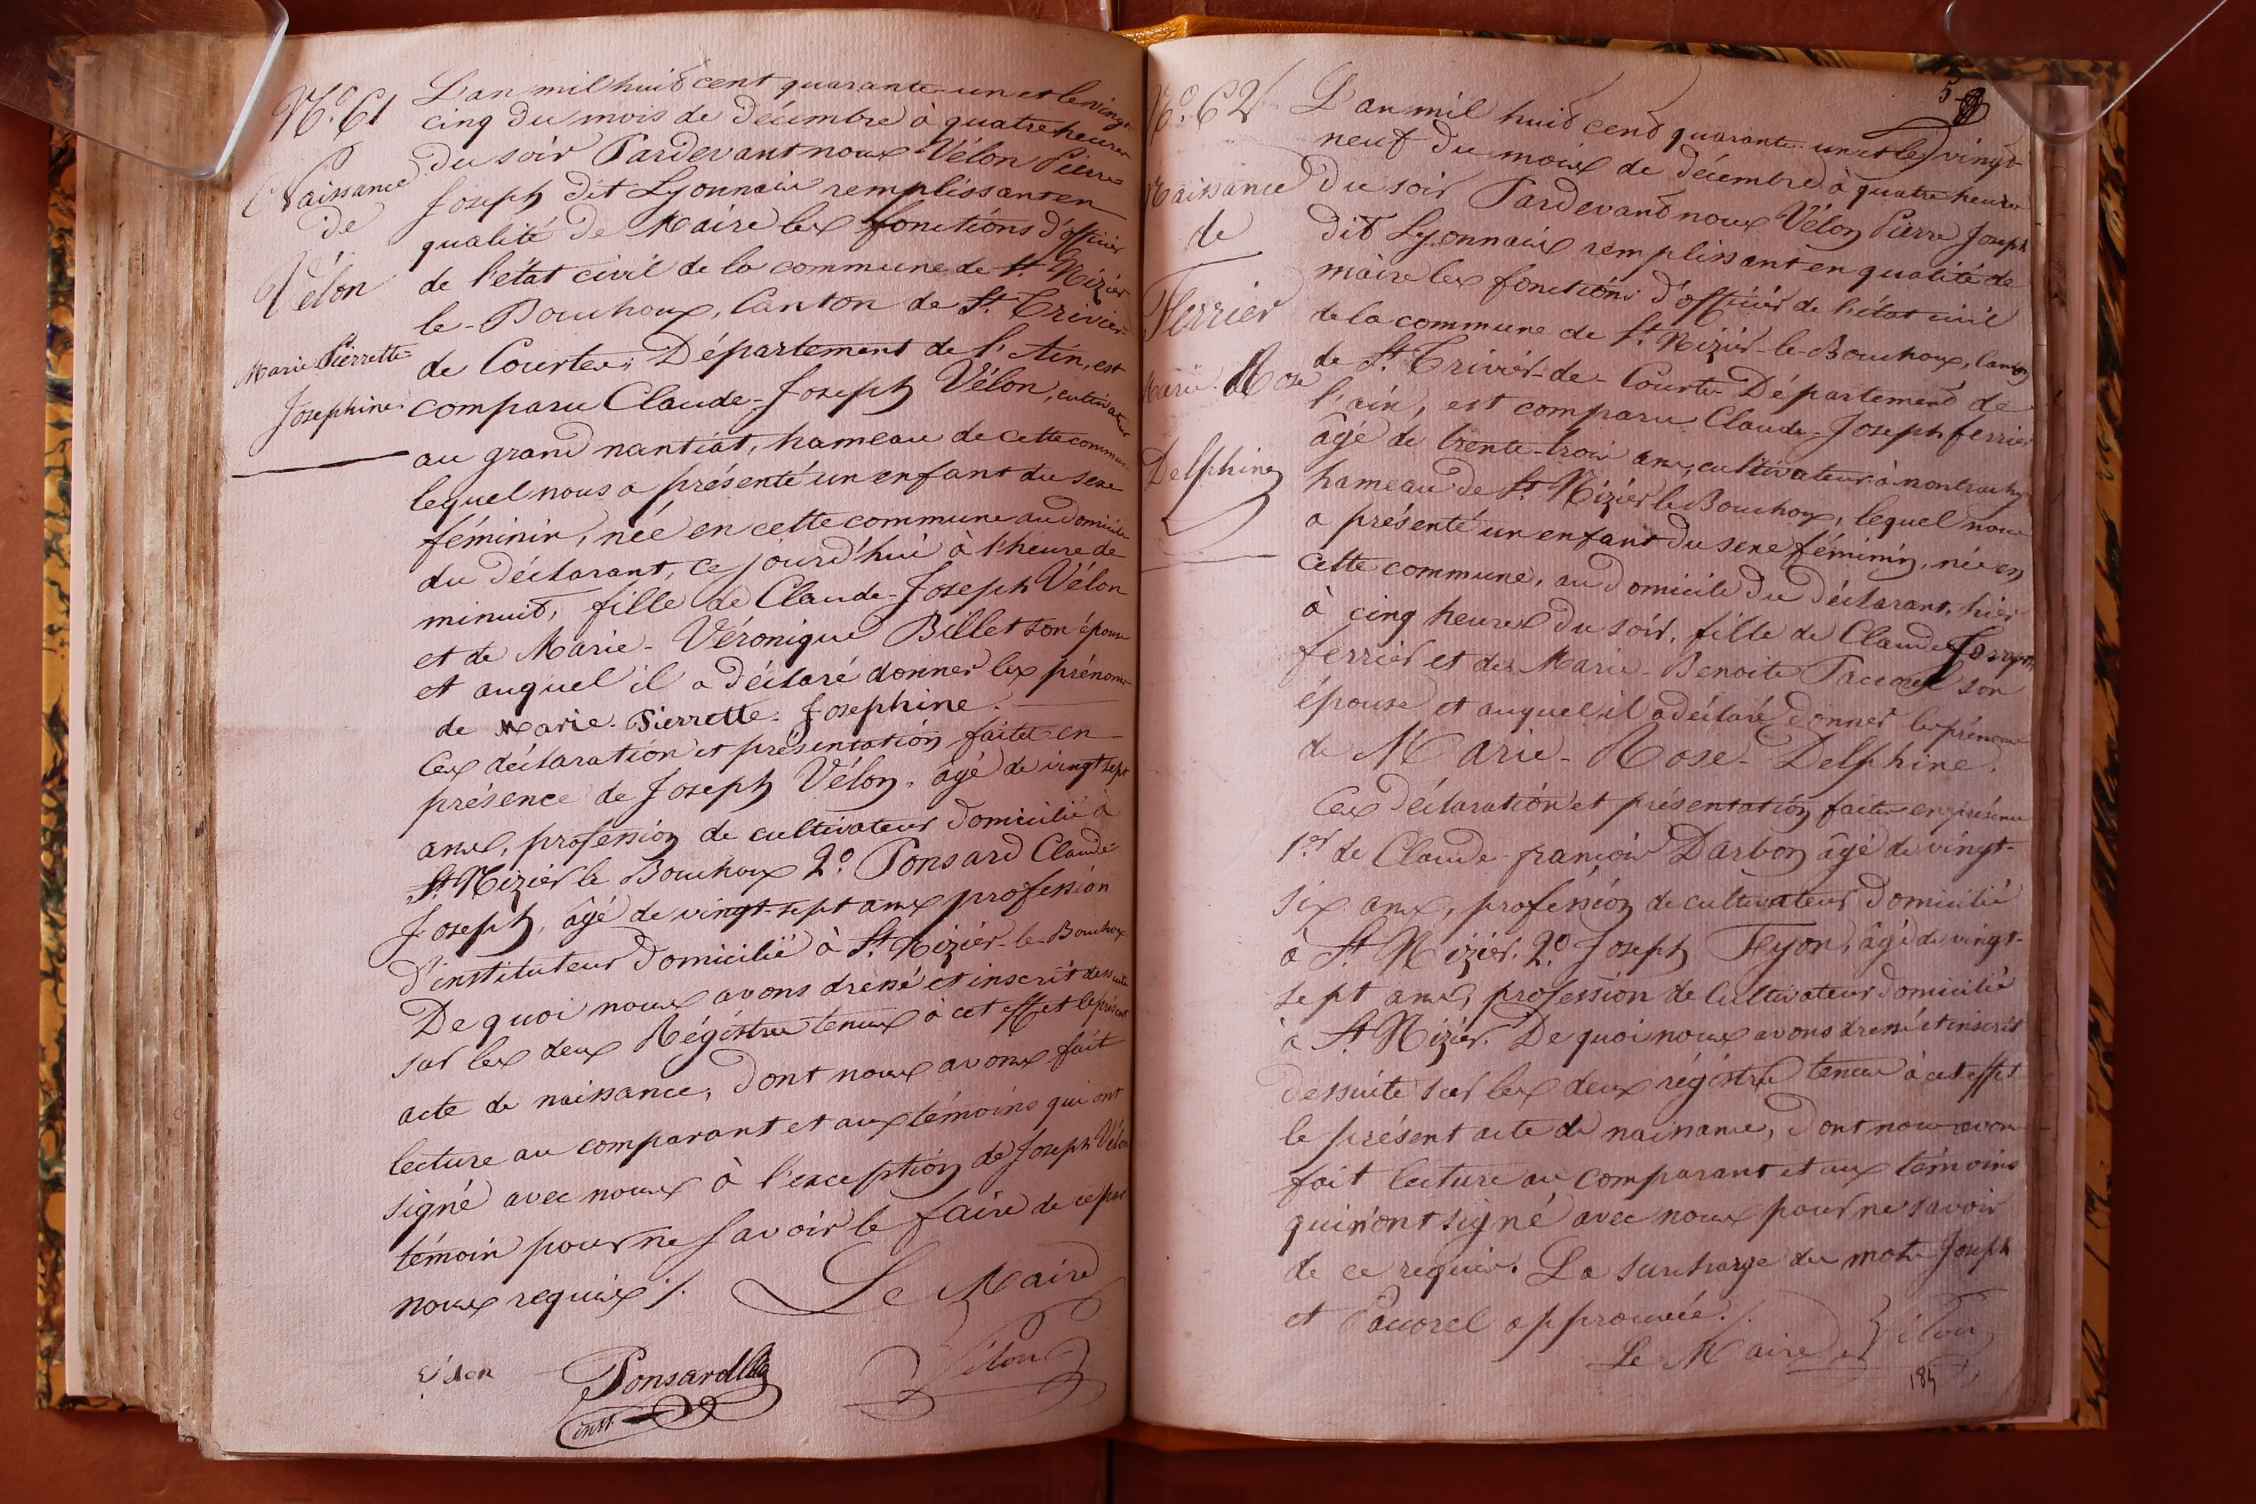 N.º 61
Naissance
de
Vélon
Marie Pierrette
Josephine
L'an mil huit cent quarante-un et le vingt
cinq du mois de Décembre à quatre heures
du soir Pardevant nous Vélon Pierre
Joseph dit Lyonnais remplissant en
qualité de Maire les fonctions d'officier
de l'état civil de la commune de St. Nizier
le-Bouchoux, Canton de St. Trivier
de Courtes; Département de l'Ain, est
comparu Claude-Joseph Vélon, cultivateur
au grand nantiat, hameau de cette commune
lequel nous a présenté un enfant du sexe
féminin, née en cette commune au domicile
du déclarant, ce jourd'hui à l'heure de
minuit, fille de Claude-Joseph Vélon
et de Marie-Véronique Billet son épouse
et auquel il a déclaré donner les prénoms
de Marie-Pierrette-Josephine.
Ces déclaration et présentation faites en
présence de Joseph Vélon, âgé de vingt sept
ans, profession de cultivateur domicilié à
St. Nizier le Bouchoux 2.º Ponsard Claude
Joseph, âgé de vingt-sept ans profession
d'instituteur domicilié à St. Nizier-le-Bouchoux
De quoi nous avons dressé et inscrit dessuite
sur les deux Régistres tenus à cet effet le présent
acte de naissance, dont nous avons fait
lecture au comparant et aux témoins qui ont
signé avec nous à l'exception de Joseph Vélon
témoin pour ne savoir le faire de ce par
nous requis ./.
Le Maire
Vélon
Ponsard
inst.
Vélon
N.º 62
Naissance
de
Ferrier
Marie Rose
Delphine
L'an mil huit cent quarante-un et le vingt
neuf du mois de décembre à quatre heures
du soir Pardevant nous Vélon Pierre Joseph
dit Lyonnais remplissant en qualité de
maire les fonctions d'officier de l'état civil
de la commune de St. Nizier-le-Bouchoux, canton
de St. Trivier-de-Courtes Département de
l'ain, est comparu Claude-Joseph ferrier
âgé de trente-trois ans, cultivateur à
hameau de St. Nizier le Bouchoux, lequel nous
a présenté un enfant du sexe féminin, née en
cette commune, au domicile du déclarant, hier
à cinq heures du soir, fille de Claude Joseph
ferrier et de Marie-Benoite Paccorel son
épouse et auquel il a déclaré donner les prénoms
de Marie-Rose-Delphine.
Ces déclaration et présentation faites en présence
1.er de Claude-françois Darbon âgé de vingt-
six ans, profession de cultivateur domicilié
à St. Nizier. 2.º Joseph Feyon, âgé de vingt-
sept ans, profession de Cultivateur domicilié
à St. Nizier. De quoi nous avons dressé et inscrit
dessuite sur les deux régistres tenus à cet effet
le présent acte de naissance, dont nous avons
fait lecture au comparant et aux témoins
qui n'ont signé avec nous pour ne savoir
de ce requis. La surcharge des mots Joseph
et Paccorel approuvée ./.
Le Maire Vélon
185